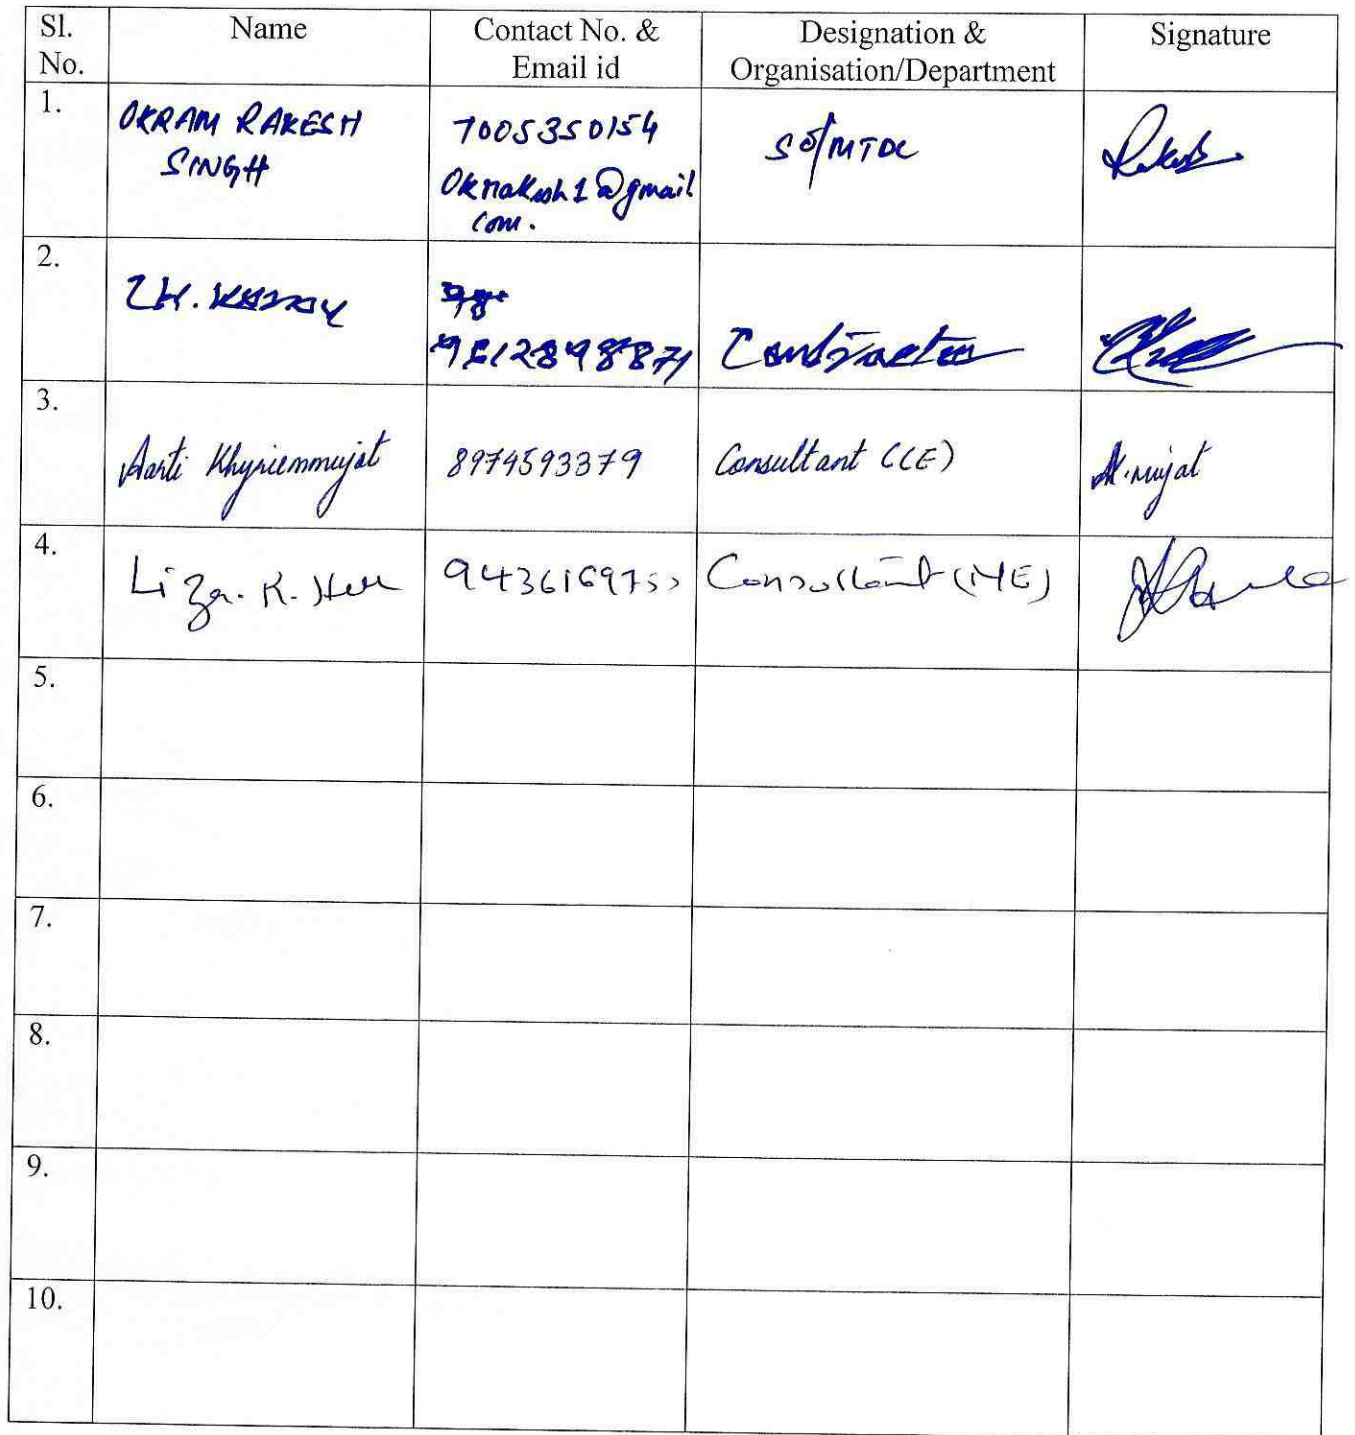 Sl. No. Name Contact No. & Email id Designation & Organisation/Department Signature
1. OKRAM RAKESH SINGH 7005350154 SO/MTDC
@gmail
com.
2. Contractor
3. Aarti Khyriemmujat 8974593379 Consultant (CE) A.mujat
4. Liza. K. Consultant (ME)
5.
6.
7.
8.
9.
10.